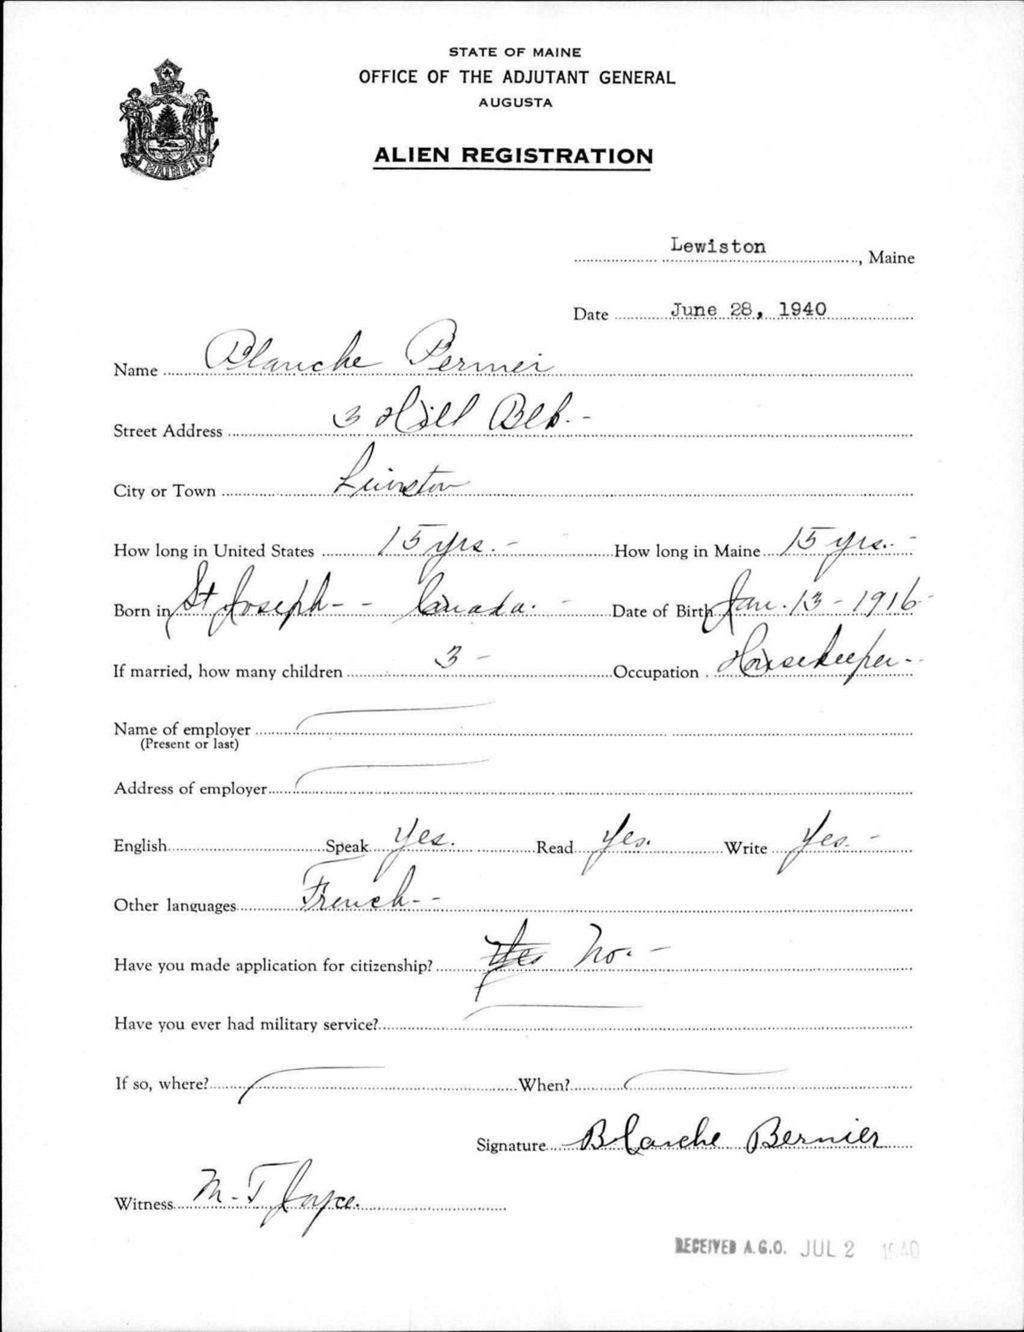 STATE OF MAINE
OFFICE OF THE ADJUTANT GENERAL
AUGUSTA
ALIEN REGISTRATION
MAINE
Lewiston, Maine
Date June 28, 1940
Name Blanche Bernier
Street Address 3 Hill Blk. -
City or Town Lewiston
How long in United States 15 yrs. - How long in Maine 15 yrs. -
Born in St Joseph - - Canada. - Date of Birth Jan. 13 - 1916 -
If married, how many children 3 - Occupation Housekeeper -
Name of employer
(Present or last)
Address of employer
English Speak Yes. Read Yes. Write Yes. -
Other languages French - -
Have you made application for citizenship? Yes No. -
Have you ever had military service?
If so, where? When?
Signature Blanche Bernier
Witness M - T Joyce.
RECEIVED A.G.O. JUL 2 1940